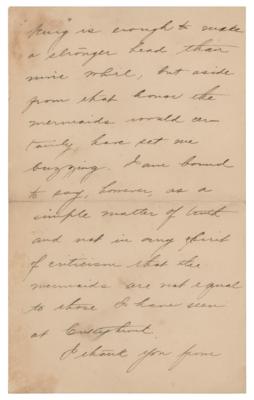 King is enough to make
a stronger head than
mine whirl, but aside
from that honor the
mermaids would cer-
tainly, have set me
buzzing. I am bound
to say, however, as a
simple matter of truth
and not in any spirit
of criticism that the
mermaids are not equal
to those I have seen
at
I thank you from